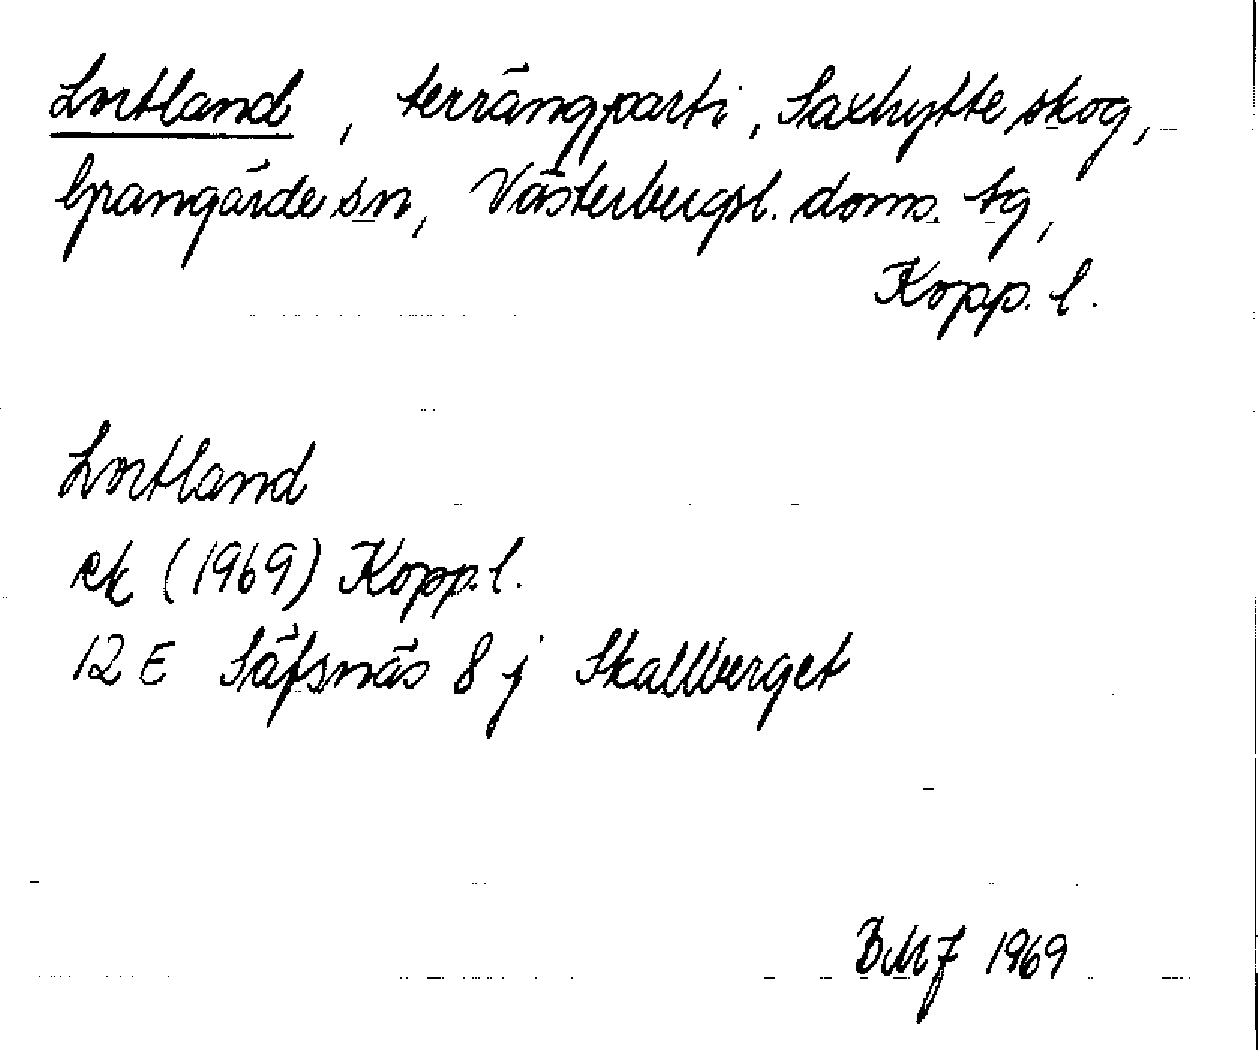 Lortland, terrängparti, Saxhytte skog,
Grangärde sn, Västerbergsl. doms. tg,
Kopp. l.
Lortland
ek (1969) Kopp. l.
12 E Säfsnäs 8 j Skallberget
BMJ 1969